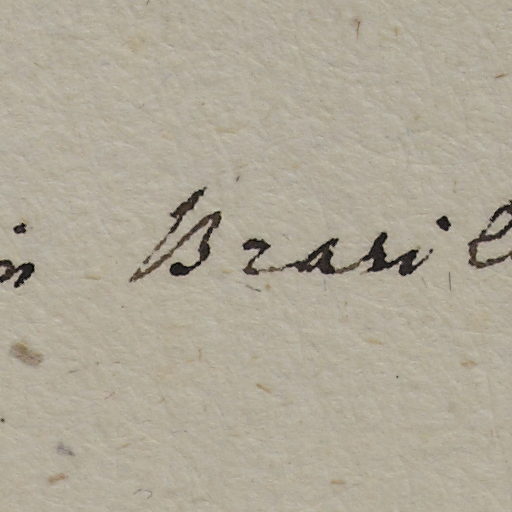 in Brasil